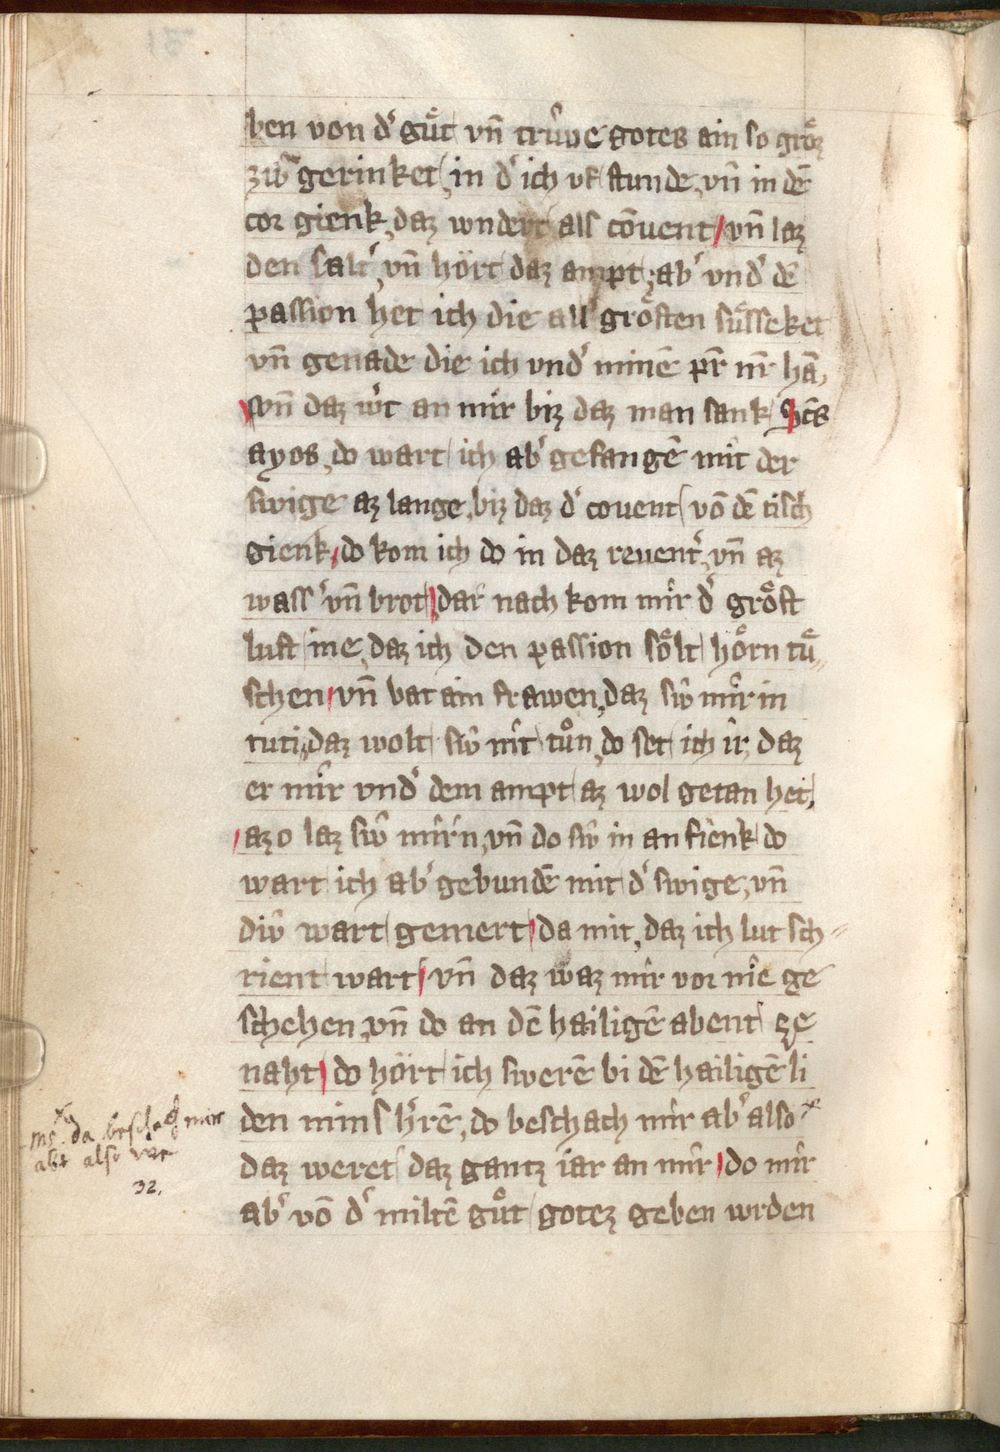 ben von dˀ guͤt vn̄ truͥwe gotes ain so groͤz
gerinket, in dˀ ich vf stunde, vn̄ in dē
cor gienk, daz wndert all cōuent, vn̄ laz
den saltˀ, vn̄ hört daz ampt, abˀ vndˀ dē
passion het ich die allˀ groͤsten suͤsseket
vn̄ genade die ich vndˀ minē pr̄ nr̄ hā,
vn̄ daz wˀt an mir biz daz man sank
ayos, do wart ich abˀ gefangē mit der
swige az lange, biz daz dˀ couent vō dē tisch
gienk, do kom ich do in daz reuentˀ, vn̄ az
wassˀ vn̄ brot, dar nach kom mir dˀ groͤst
lust ine, daz ich den passion soͤlt hoͤrn tuͤ„
schen, vn̄ bat ain frawen, daz swͥ mir in
tuti, daz wolt swͥ nit tuͦn, do set ich ir, daz
er mir vndˀ dem ampt az wol getan het,
azo laz swͥ mirn, vn̄ do swͥ in an fienk do
wart ich abˀ gebundē mit dˀ swige, vn̄
diwͥ wart gemert, da mit, daz ich lut sch=
rient wart, vn̄ daz waz mir vor nie ge
schehen, vn̄ do an dē hailigē abent ze
naht, do hört ich swerē bi dē hailigē li
den mins hˀrē, do beschach mir abˀ also x
daz weret daz gantz iar an mir, do mir
abˀ vō dˀ miltē guͤt gotez geben wrden
x
ms. da beschach mir
abr also
32.